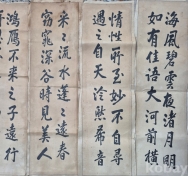 海風碧雲夜渚月明
如有佳語大河前橫
情性所至妙不自尋
遇之自天泠然希音
采采流水蓬蓬遠春
窈窕深谷時見美人
鴻雁不來之子遠行